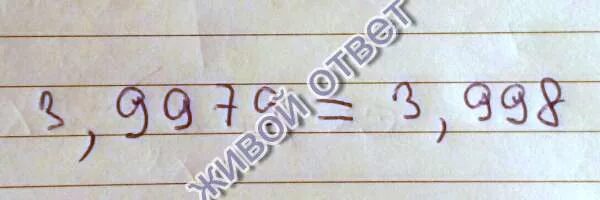 3,9979 = 3,998
живой ответ